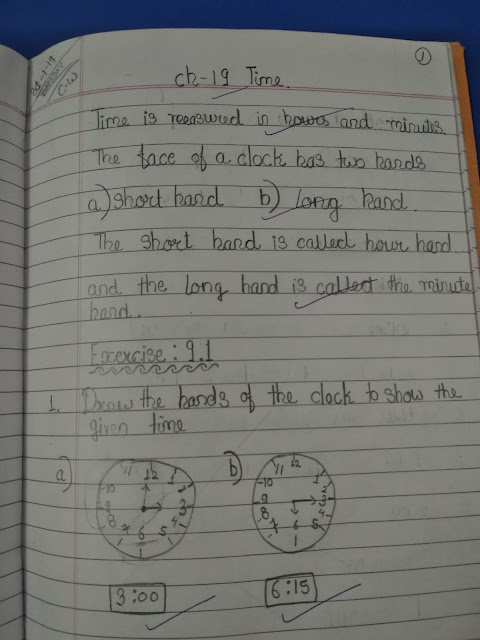 1
24-1-19
Thursday
C-W
ch-19 Time.
Time is measured in hours and minutes.
The face of a clock has two hands
a) short hand b) long hand.
The short hand is called hour hand
and the long hand is called the minute
hand.
Exercise: 9.1
1. Draw the hands of the clock to show the
given time
a) 11 12 1 2 3 4 5 6 7 8 9 10
b) 11 12 1 2 3 4 5 6 7 8 9 10
3:00 6:15